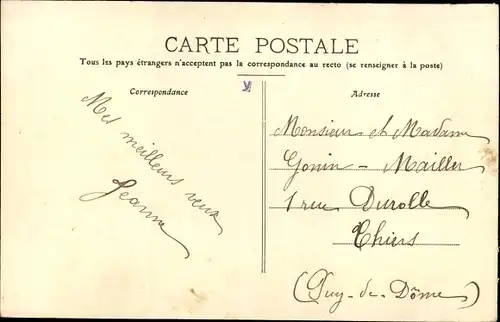 CARTE POSTALE
Tous les pays étrangers n'acceptent pas la correspondance au recto (se renseigner à la poste)
Correspondance
Mes meilleurs vœux
Jeanne
Adresse
Monsieur et Madame
Gonin - Mailler
1 rue Durolle
Thiers
(Puy-de-Dôme)